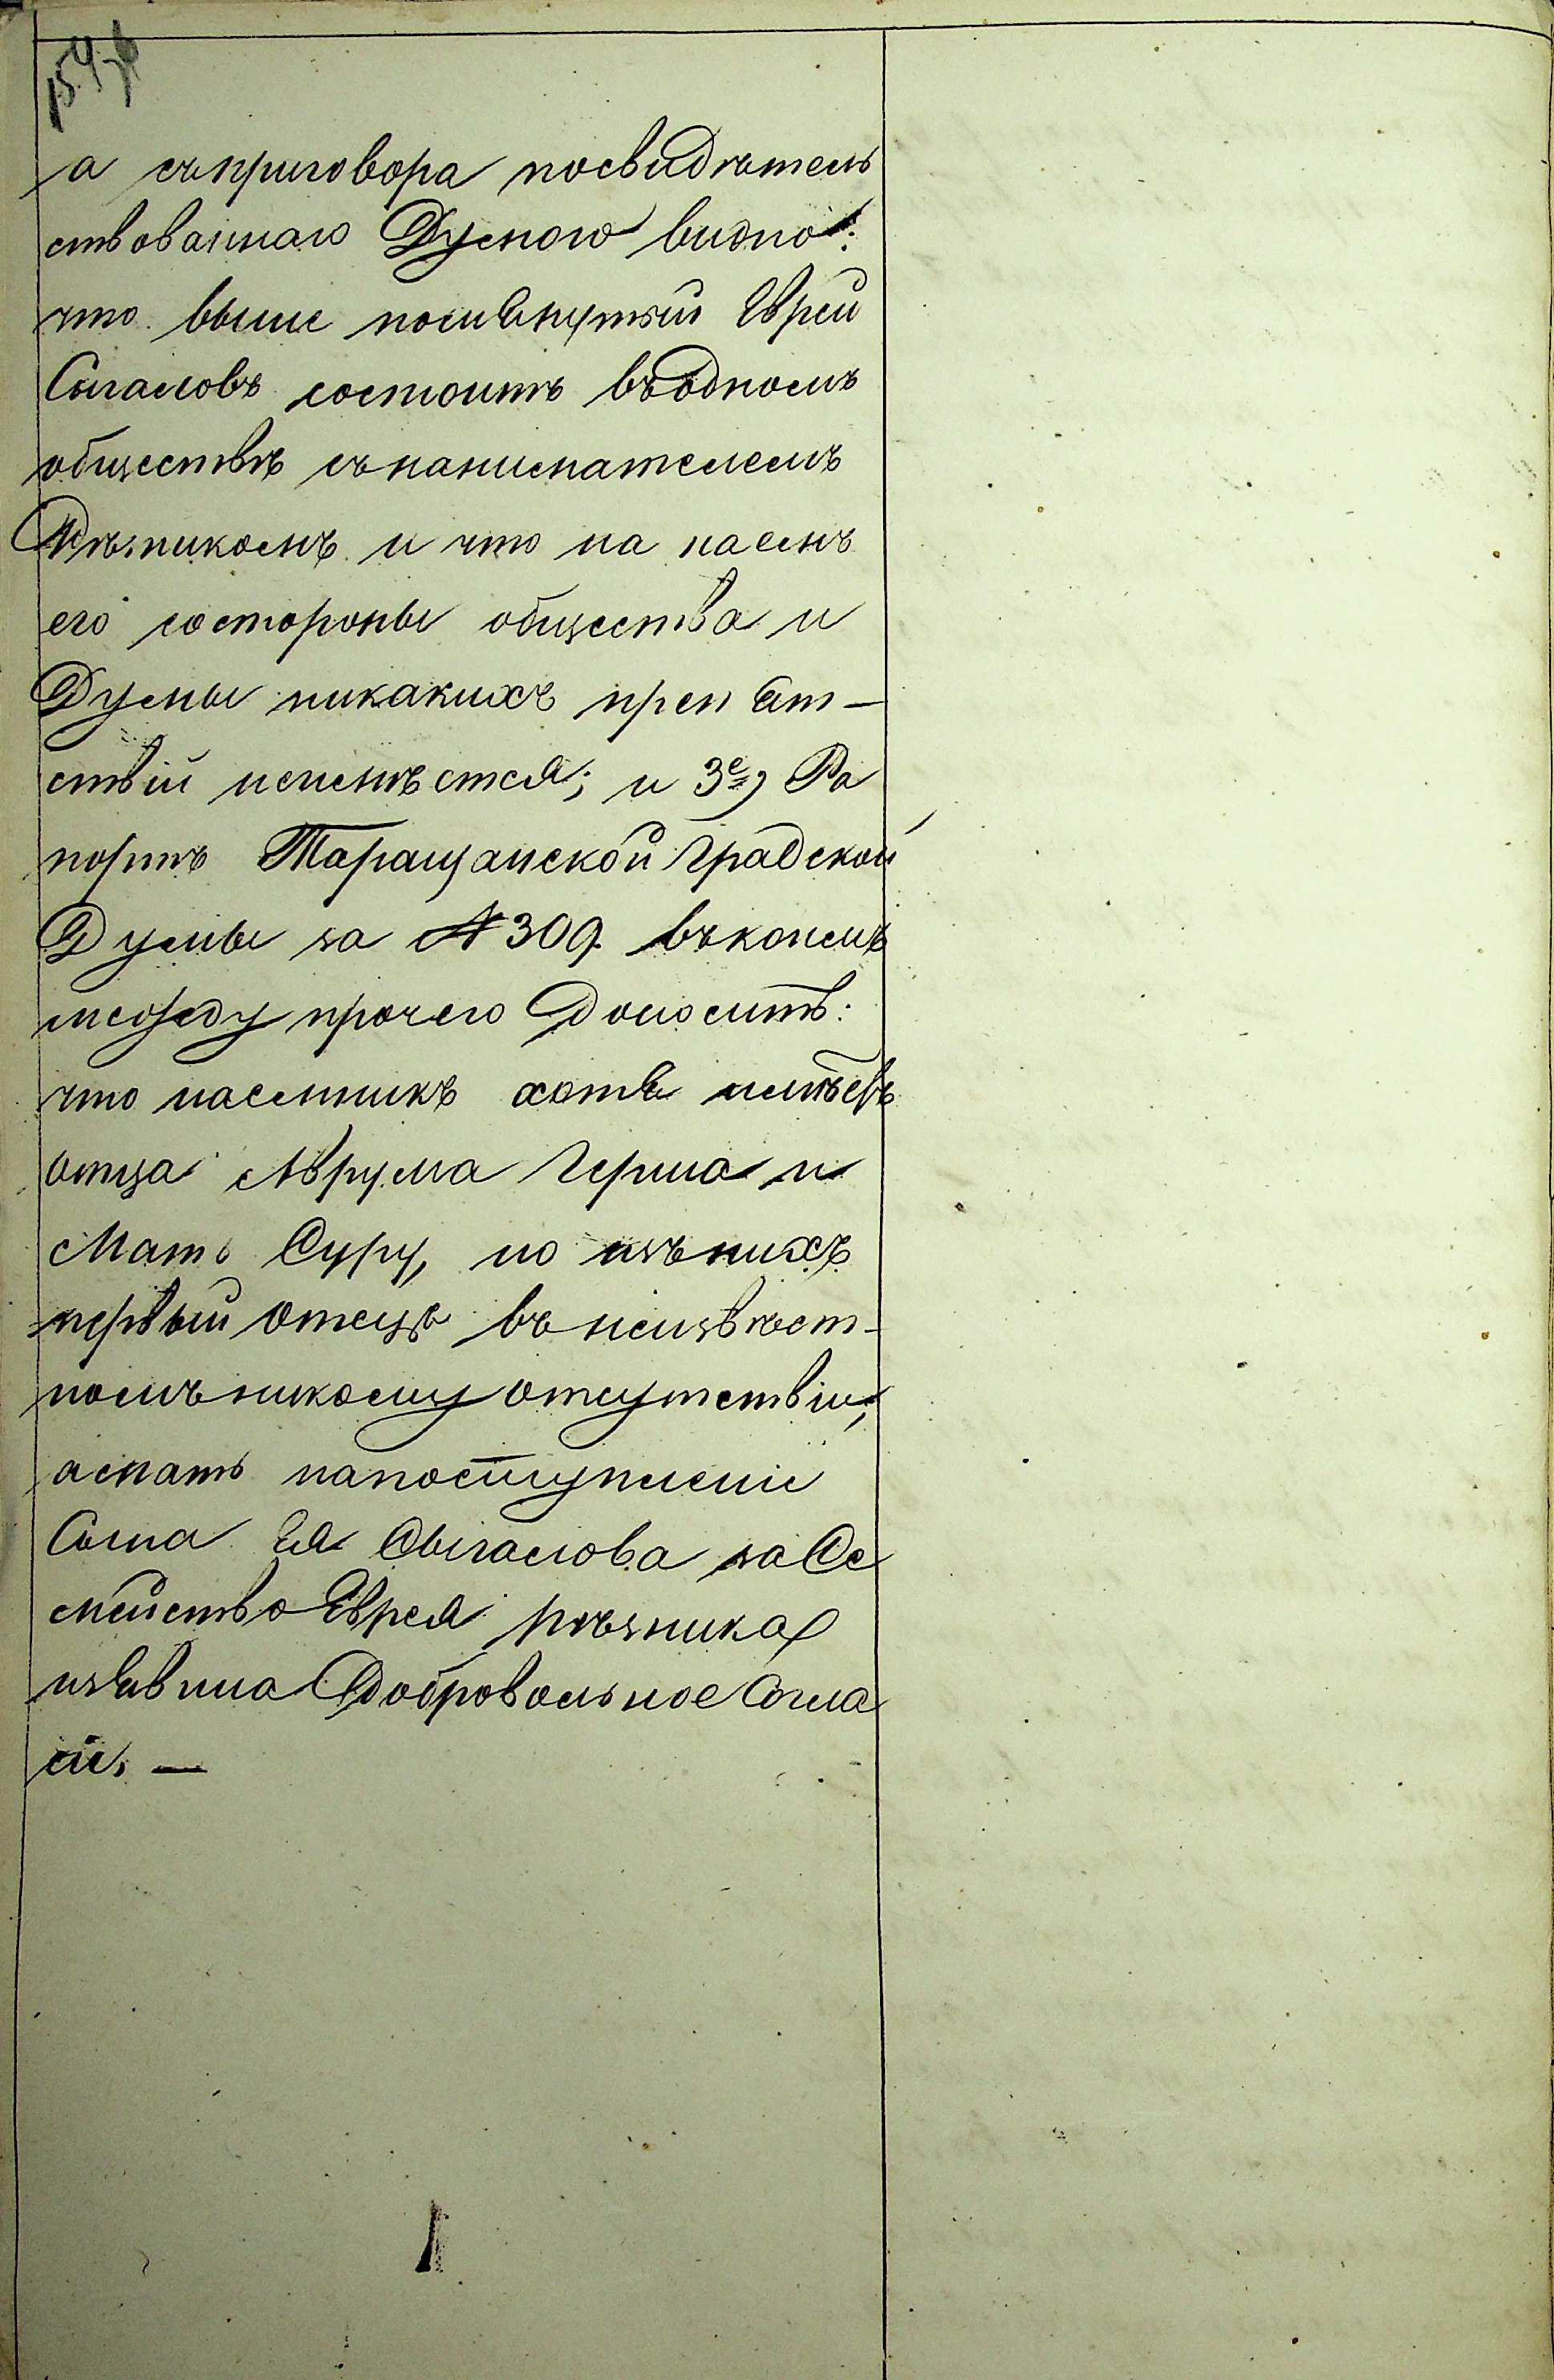 а съприговора посвидѣтель
ствованнаго Думою видно:
что выше помянутый Еврей
Сигаловъ состоитъ въодномъ
обществѣ съ нанимателемъ
Рѣзникомъ и что на наемъ
его состороны общества и
Думы никакихъ препят-
ствій неимѣется; и 3е, Ра
портъ Таращанской Градской
Думы за № 309. въкоемъ
между прочего Доноситъ:
что наемникъ хотя имѣетъ
отца Аврума Герша и
Мать Суру, но изънихъ
первый Отецъ въ неизвѣст-
номъ никому отсутствіи,
а мать напоступленіе
Сына Ея Сыгалова за Се
мейство Еврея рѣзника
изявила Добровольное Согла
сіе. —